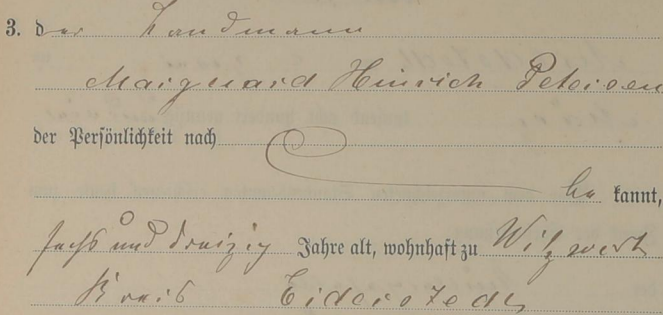 3. der Landmann
Marquard Hinrich Petersen
der Persönlichkeit nach
be kannt,
sechs und dreizig Jahre alt, wohnhaft zu Witzwort
Kreis Eiderstedt